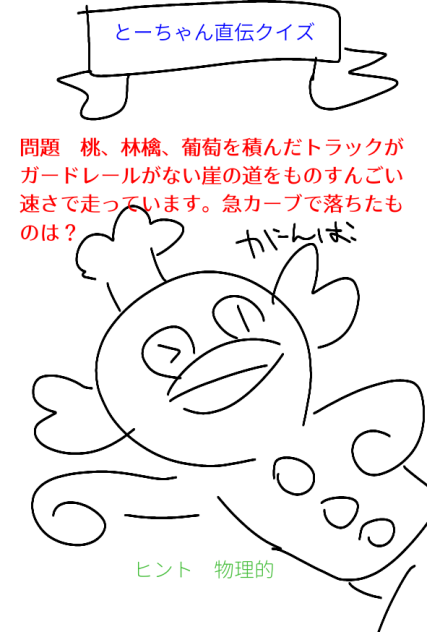 とーちゃん直伝クイズ
問題　桃、林檎、葡萄を積んだトラックが
ガードレールがない崖の道をものすんごい
速さで走っています。急カーブで落ちたも
のは？
がんば
ヒント　物理的